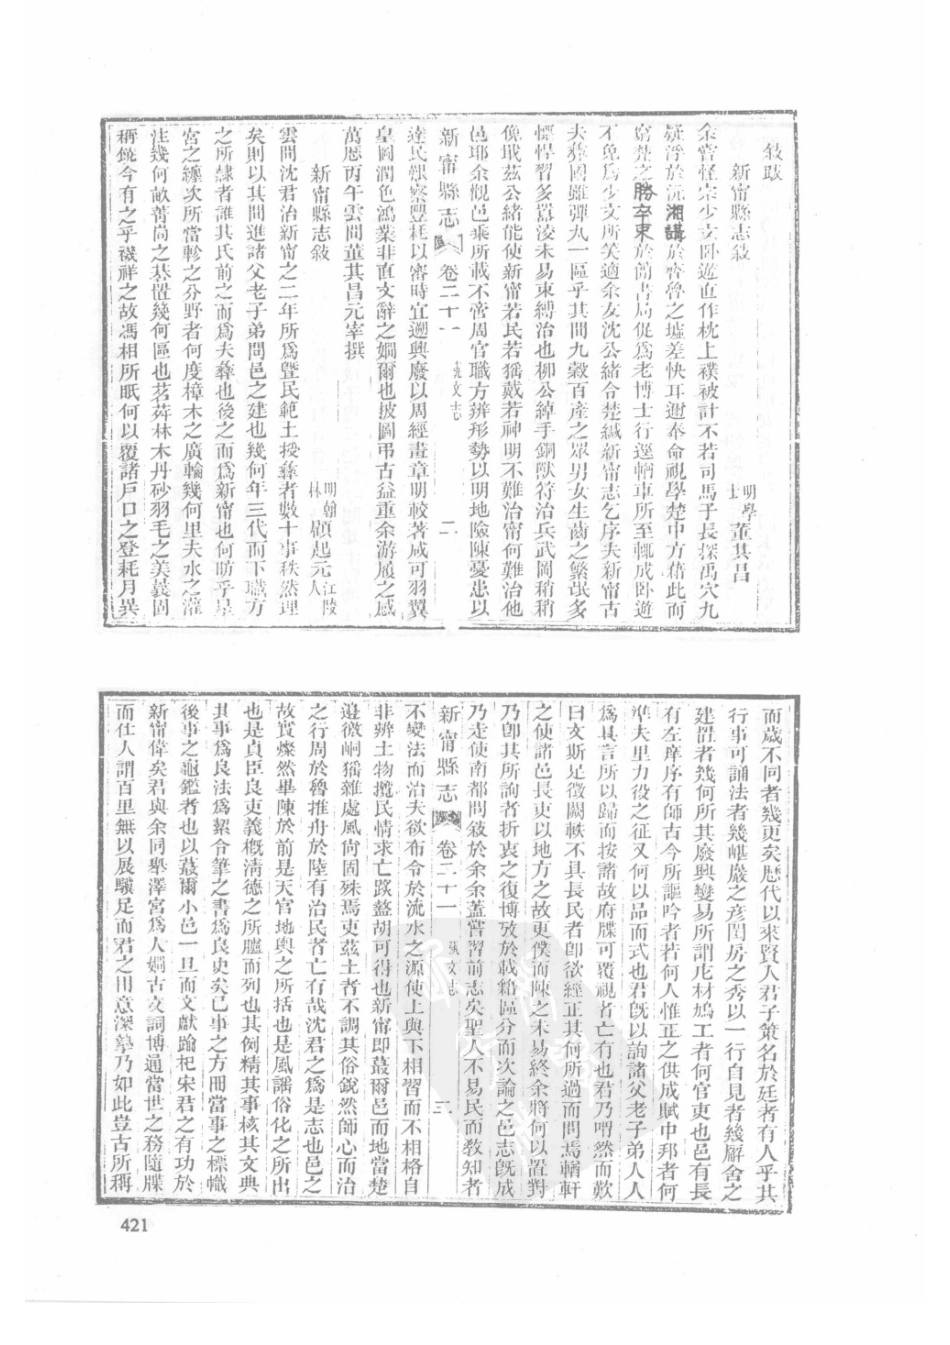 敍跋
新甯縣志敍
明學士董其昌
余嘗怪宗少文臥遊直作枕上襆被計不若司馬子長探禹穴九
疑浮於沅湘講於齊魯之墟差快耳邇奉命視學楚中方藉此而
窮楚之勝卒束於簡書局促爲老博士行逕輶車所至輒成臥遊
不免爲少文所笑適余友沈公緒合楚緘新甯志乞序夫新甯古
夫猺國雖彈丸一區乎其間九穀百產之眾男女生齒之繁氓多
慓悍習多囂淩未易束縛治也柳公綽手銅獸符治兵武岡稍稍
俛戢茲公緒能使新甯若民若猺戴若神明不難治甯何難治他
邑耶余覩邑乘所載不啻周官職方辨形勢以明地險陳憂患以
新甯縣志 卷二十一 藝文志 二
達民艱察豐耗以審時宜遡興廢以周經畫章明較著咸可羽翼
皇圖潤色鴻業非直文辭之嫺爾也披圖弔古益重余游屐之感
萬厯丙午雲間董其昌元宰撰
新甯縣志敍
明翰林顧起元江陵人
雲間沈君治新甯之二年所爲曁民範土授彝者數十事秩然理
矣則以其間進諸父老子弟問邑之建也幾何年三代而下職方
之所隸者誰其氏前之而爲夫彝也後之而爲新甯也何昉乎星
宮之纏次所當軫之分野者何度樟木之廣輪幾何里夫水之灌
注幾何畝菁尚之棊置幾何區也茗荈林木丹砂羽毛之美曩固
稱饒今有之乎禨祥之故馮相所眂何以覆諸戶口之登耗月異
而歲不同者幾更矣歷代以來賢人君子策名於廷者有人乎其
行事可誦法者幾嵁巖之彥閨房之秀以一行自見者幾廨舍之
建置者幾何所其廢興變易所謂庀材鳩工者何官吏也邑有長
有左庠序有師古今所謳吟者若何人惟正之供成賦中邦者何
準夫里力役之征又何以品而式也君旣以詢諸父老子弟人人
爲具言所以歸而按諸故府牒可覆視者亡有也君乃喟然而歎
曰文斯足徵闕軼不具長民者卽欲經正其何所過而問焉輶軒
之使諸邑長吏以地方之故更僕而陳之未易終余將何以置對
乃卽其所詢者折衷之復博攷於載籍區分而次論之邑志旣成
乃走使南都問敍於余余蓋嘗習前志矣聖人不易民而敎知者
新甯縣志 卷二十一 藝文志 三
不變法而治夫欲布令於流水之源使上與下相習而不相格自
非辨土物攬民情求亡蹊盭胡可得也新甯卽蕞爾邑而地當楚
邊徼峒猺雜處風尚固殊焉吏茲土者不調其俗銳然師心而治
之行周於魯推舟於陸有治民者亡有哉沈君之爲是志也邑之
故實燦然畢陳於前是天官地輿之所括也是風謠俗化之所出
也是貞臣良吏義槪淸德之所臚而列也其例精其事核其文典
其事爲良法爲絜令筆之書爲良史矣已事之方冊當事之標幟
後事之龜鑑者也以蕞爾小邑一旦而文獻踰杞宋君之有功於
新甯偉矣君與余同舉澤宮爲人嫺古文詞博通當世之務隨牒
而仕人謂百里無以展驥足而君之用意深摯乃如此豈古所稱
421